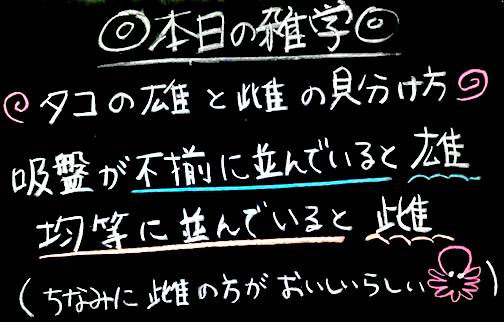 ◎本日の雑学◎
タコの雄と雌の見分け方
吸盤が不揃に並んでいると雄
均等に並んでいると雌
(ちなみに雌の方がおいしいらしい)